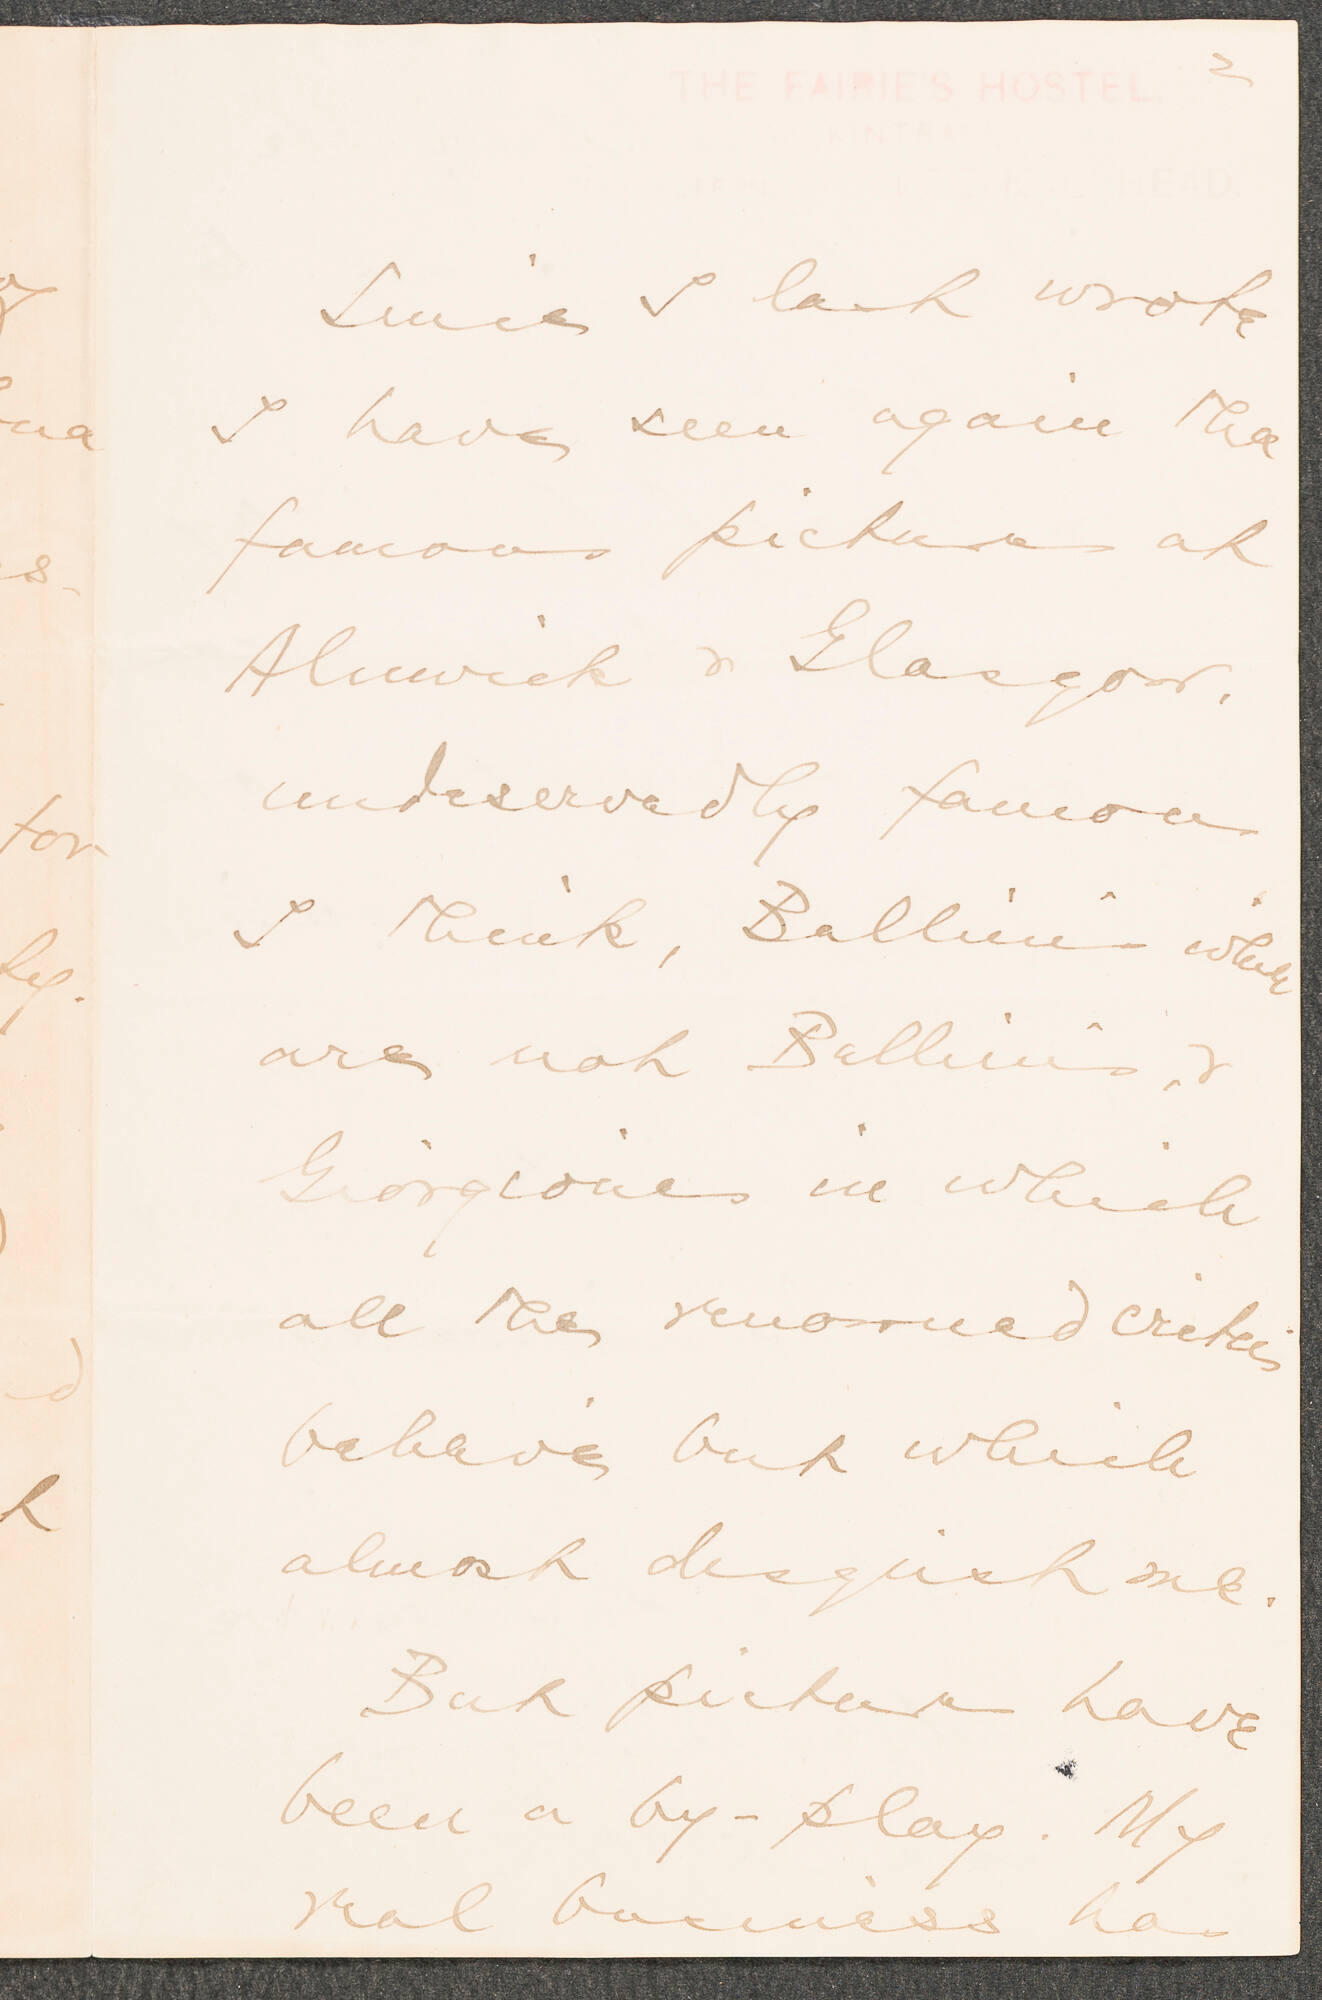 2
THE FAIRIE'S HOSTEL.
HEAD.
Since I last wrote
I have seen again the
famous pictures at
Alnwick & Glasgow,
undeservedly famous
I think, Bellinis which
are not Bellinis, &
Giorgiones in which
all the renowned critics
believe but which
almost disgust me.
But pictures have
been a by-play. My
real business has
for